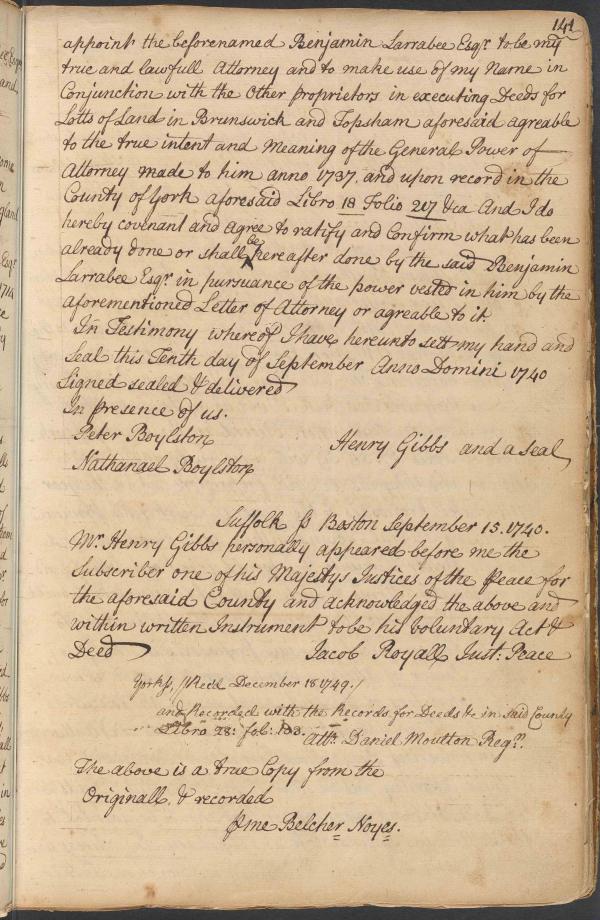 141
appoint the beforenamed Benjamin Larrabee Esqr. to be my
true and lawfull Attorney and to make use of my Name in
Conjunction with the Other proprietors in executing Deeds for
Lotts of Land in Brunswick and Topsham aforesaid agreable
to the true intent and Meaning of the General Power of
Attorney made to him anno 1737. and upon record in the
County of York aforesaid Libro 18 Folio 217 &ca And I do
hereby covenant and agree to ratify and Confirm what has been
already done or shall be hereafter done by the said Benjamin
Larrabee Esqr. in pursuance of the power vested in him by the
aforementioned Letter of Attorney or agreable to it.
In Testimony whereof I have hereunto sett my hand and
Seal this Tenth day of September Anno Domini 1740
Signed sealed & delivered
In presence of us.
Peter Boylston
Henry Gibbs and a seal
Nathanael Boylston
Suffolk ss Boston September 15. 1740.
Mr. Henry Gibbs personally appeared before me the
Subscriber one of his Majestys Justices of the Peace for
the aforesaid County and acknowledged the above and
within written Instrument to be his Voluntary Act &
Deed
Jacob Royall Just: Peace
York ss, /Recd December 18 1749./
and Recorded with the Records for Deeds &c in said County
Libro 28: fol:
Attr. Daniel Moulton Regr.
The above is a true Copy from the
Originall, & recorded
Pr me Belcher Noyes.